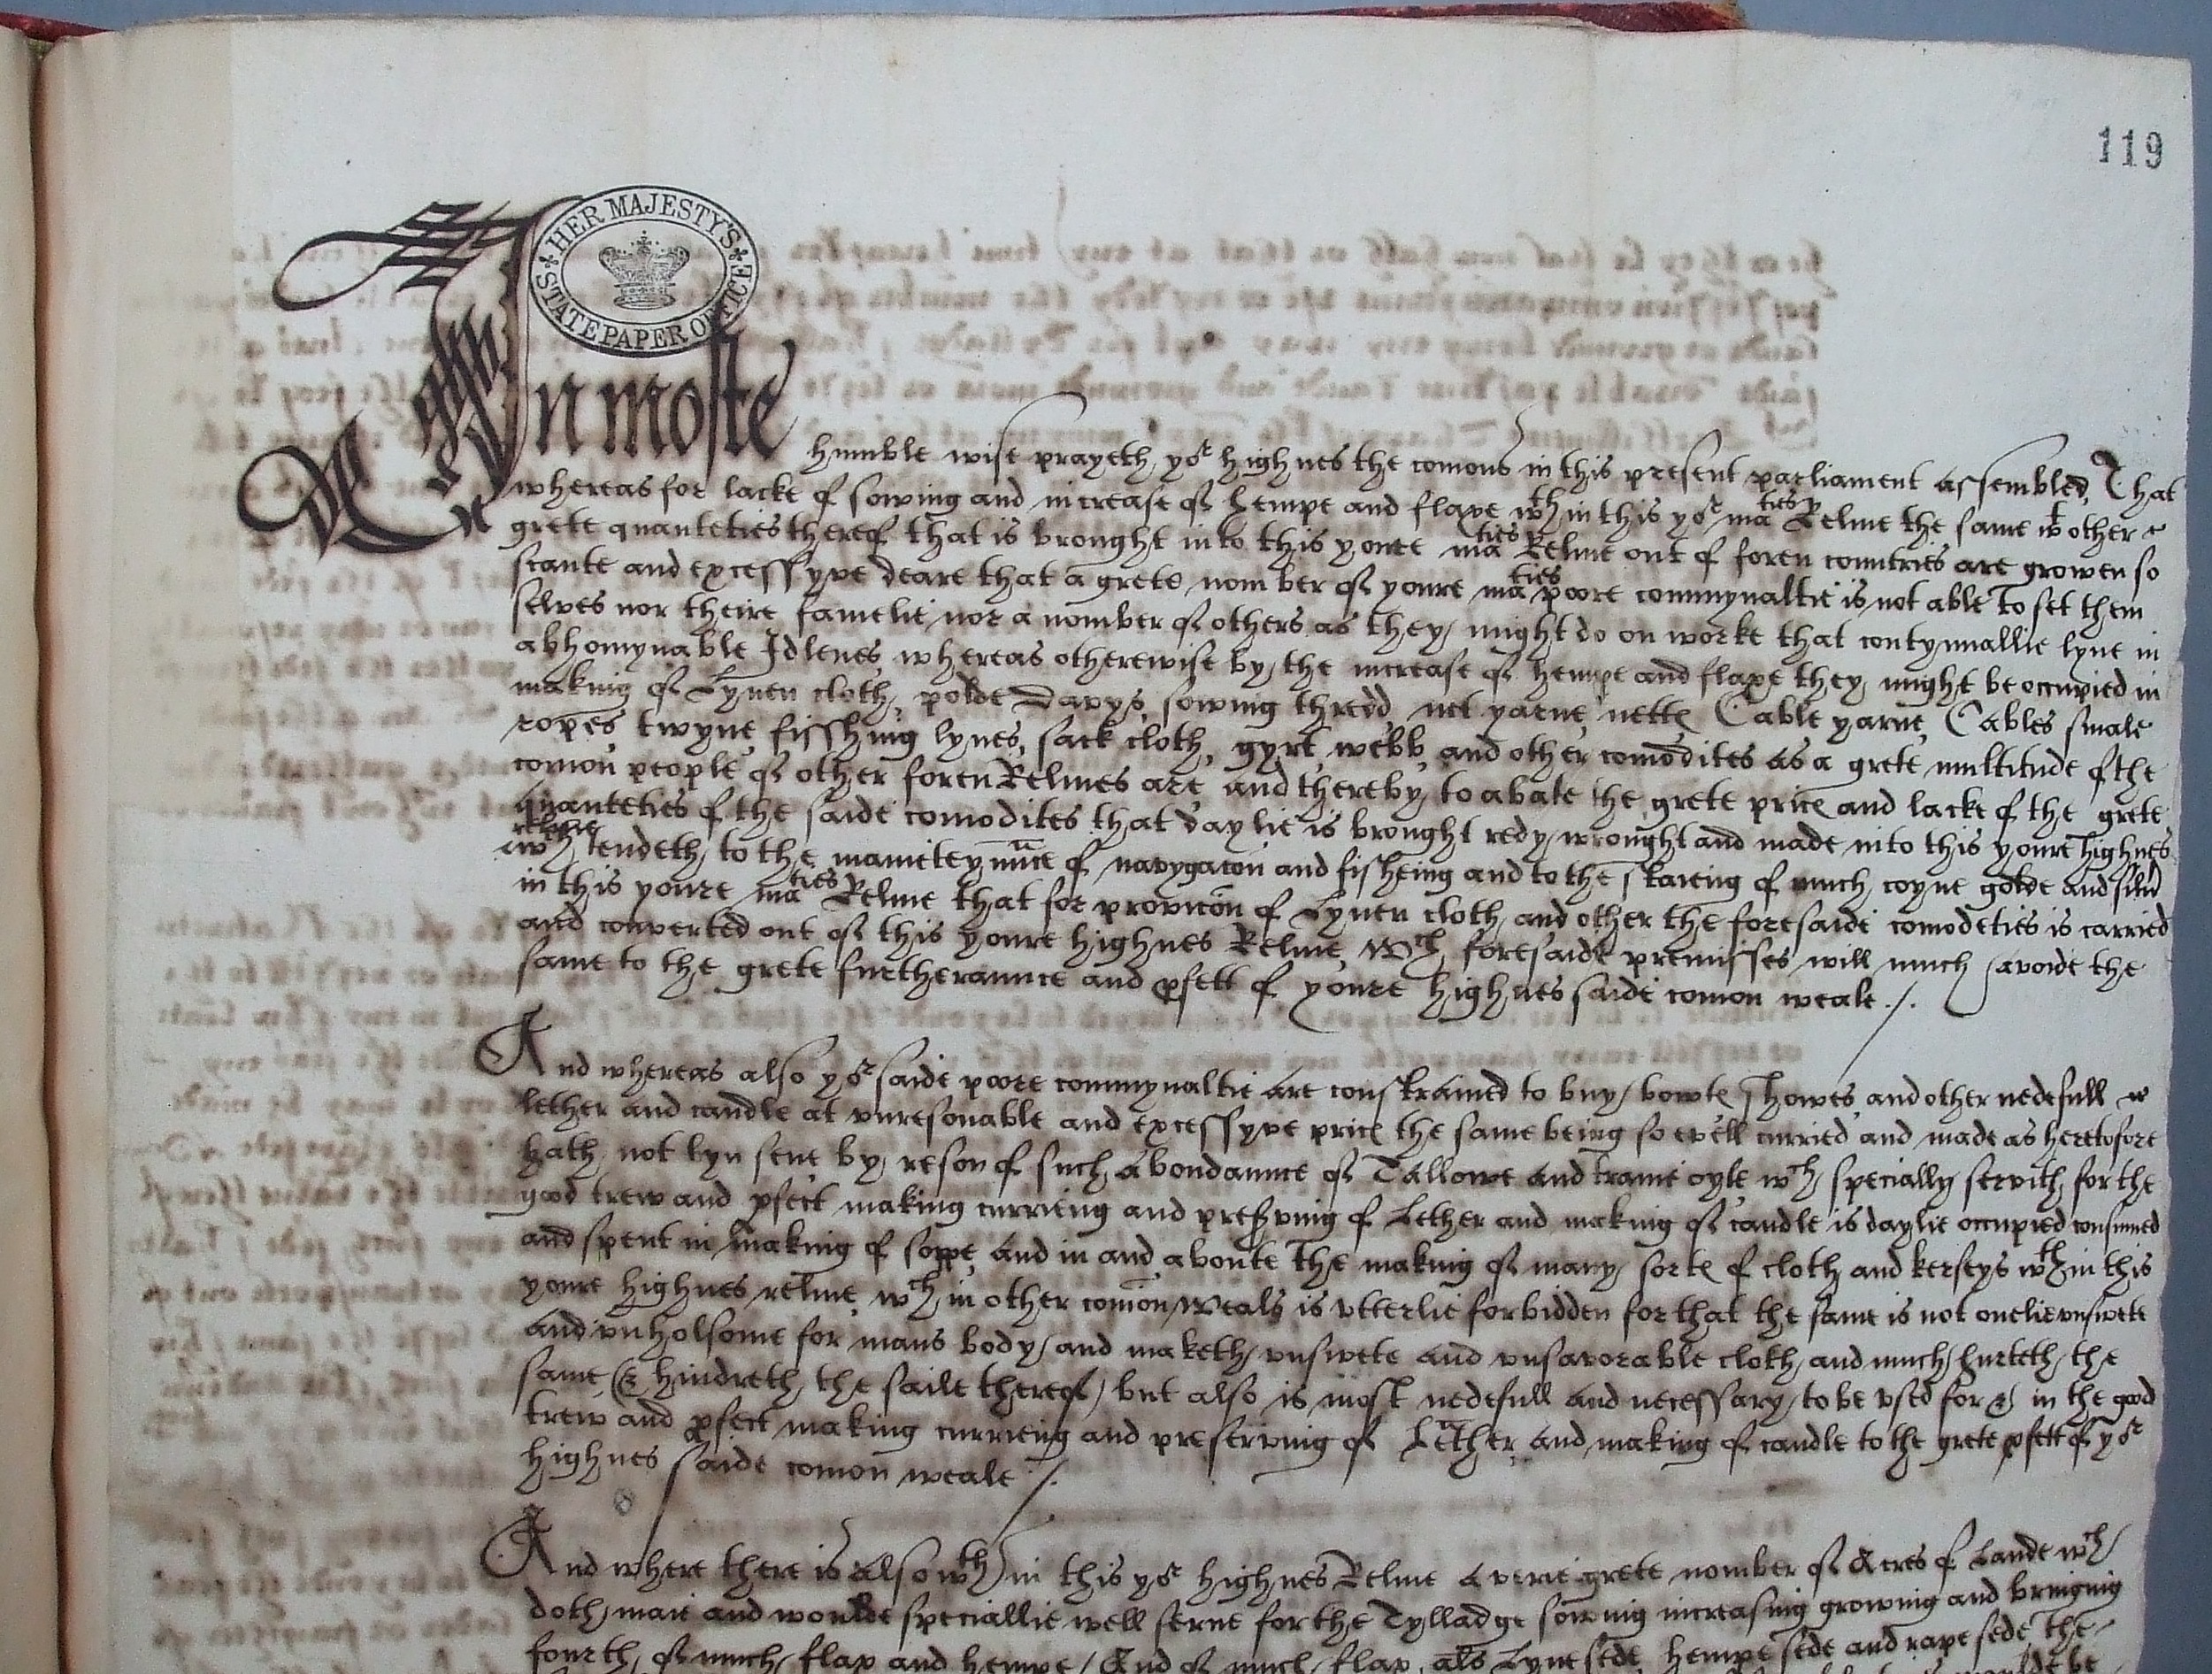 119
HER MAJESTY'S STATE PAPER OFFICE
In moste
humble wise prayeth yor highnes the comons in this present parliament assembled, That
whereas for lacke of sowing and increase of hempe and flaxe wthin this yor maties Relme the same wt other
grete quanteties thereof that is brought into this youre maties Relme out of foren countries are growen so
scante and excessyve deare that a grete nomber of youre maties poore communaltie is not able to set them
selves nor theire famelie nor a nomber of others as they might do on worke that contynuallie lyve in
abhomynable Idlenes whereas otherewise by the increase of hempe and flaxe they might be occupied in
making of Lynen cloth, polde Davys, sowing thredd net yarne nette Cable yarne, Cables smale
ropes twyne fisshing lynes, sack cloth, gyrt webb and other comodites as a grete multitude of the
comon people of other foren Relmes are and thereby to abate the grete price and lacke of the grete
quanteties of the saide comodites that daylie is brought redy wrought and made into this youre highnes
relme
wch tendeth to the of navygacon and fisheing and to the of much coyne golde and
in this youre maties Relme that for provicon of Lynen cloth and other the foresaide comodeties is carried
and converted out of this youre highnes Relme, Wch foresaide premisses will much avoide the
same to the grete furtheraunce and pfett of youre highnes saide comon weale ./.
And whereas also yor saide poore communaltie are constrained to buy bowte showes and other nedefull
lether and candle at unresonable and excessyve price the same being so evell curried and made as heretofore
hath not byn sene by reson of such abondaunce of Tallowe and traine oyle wch specially servith for the
good trew and pfect making currieng and preserving of Lether and making of candle is daylie occupied consumed
and spent in making of sope and in and aboute the making of many sorte of cloth and kerseys wthin this
youre highnes relme, wch in other comon weals is utterlie forbidden for that the same is not onelie unswete
and unholsome for mans body and maketh unswete and unsavorable cloth and much hurteth the
same & hindreth the saile thereof, but also is most nedefull and necessary to be used for & in the good
trew and pfect making currieng and preserving of Lether and making of candle to the grete pfett of yor
highnes saide comon weale ./.
And where there is also wthin this yor highnes Relme a verie grete nomber of Acres of Lande wch
doth, maie and woulde speciallie well serve for the Tylladge sowing increasing growing and bringing
fourth of much flax and hempe, And of much flax, als Lyne sede hempe sede and rape sede, the